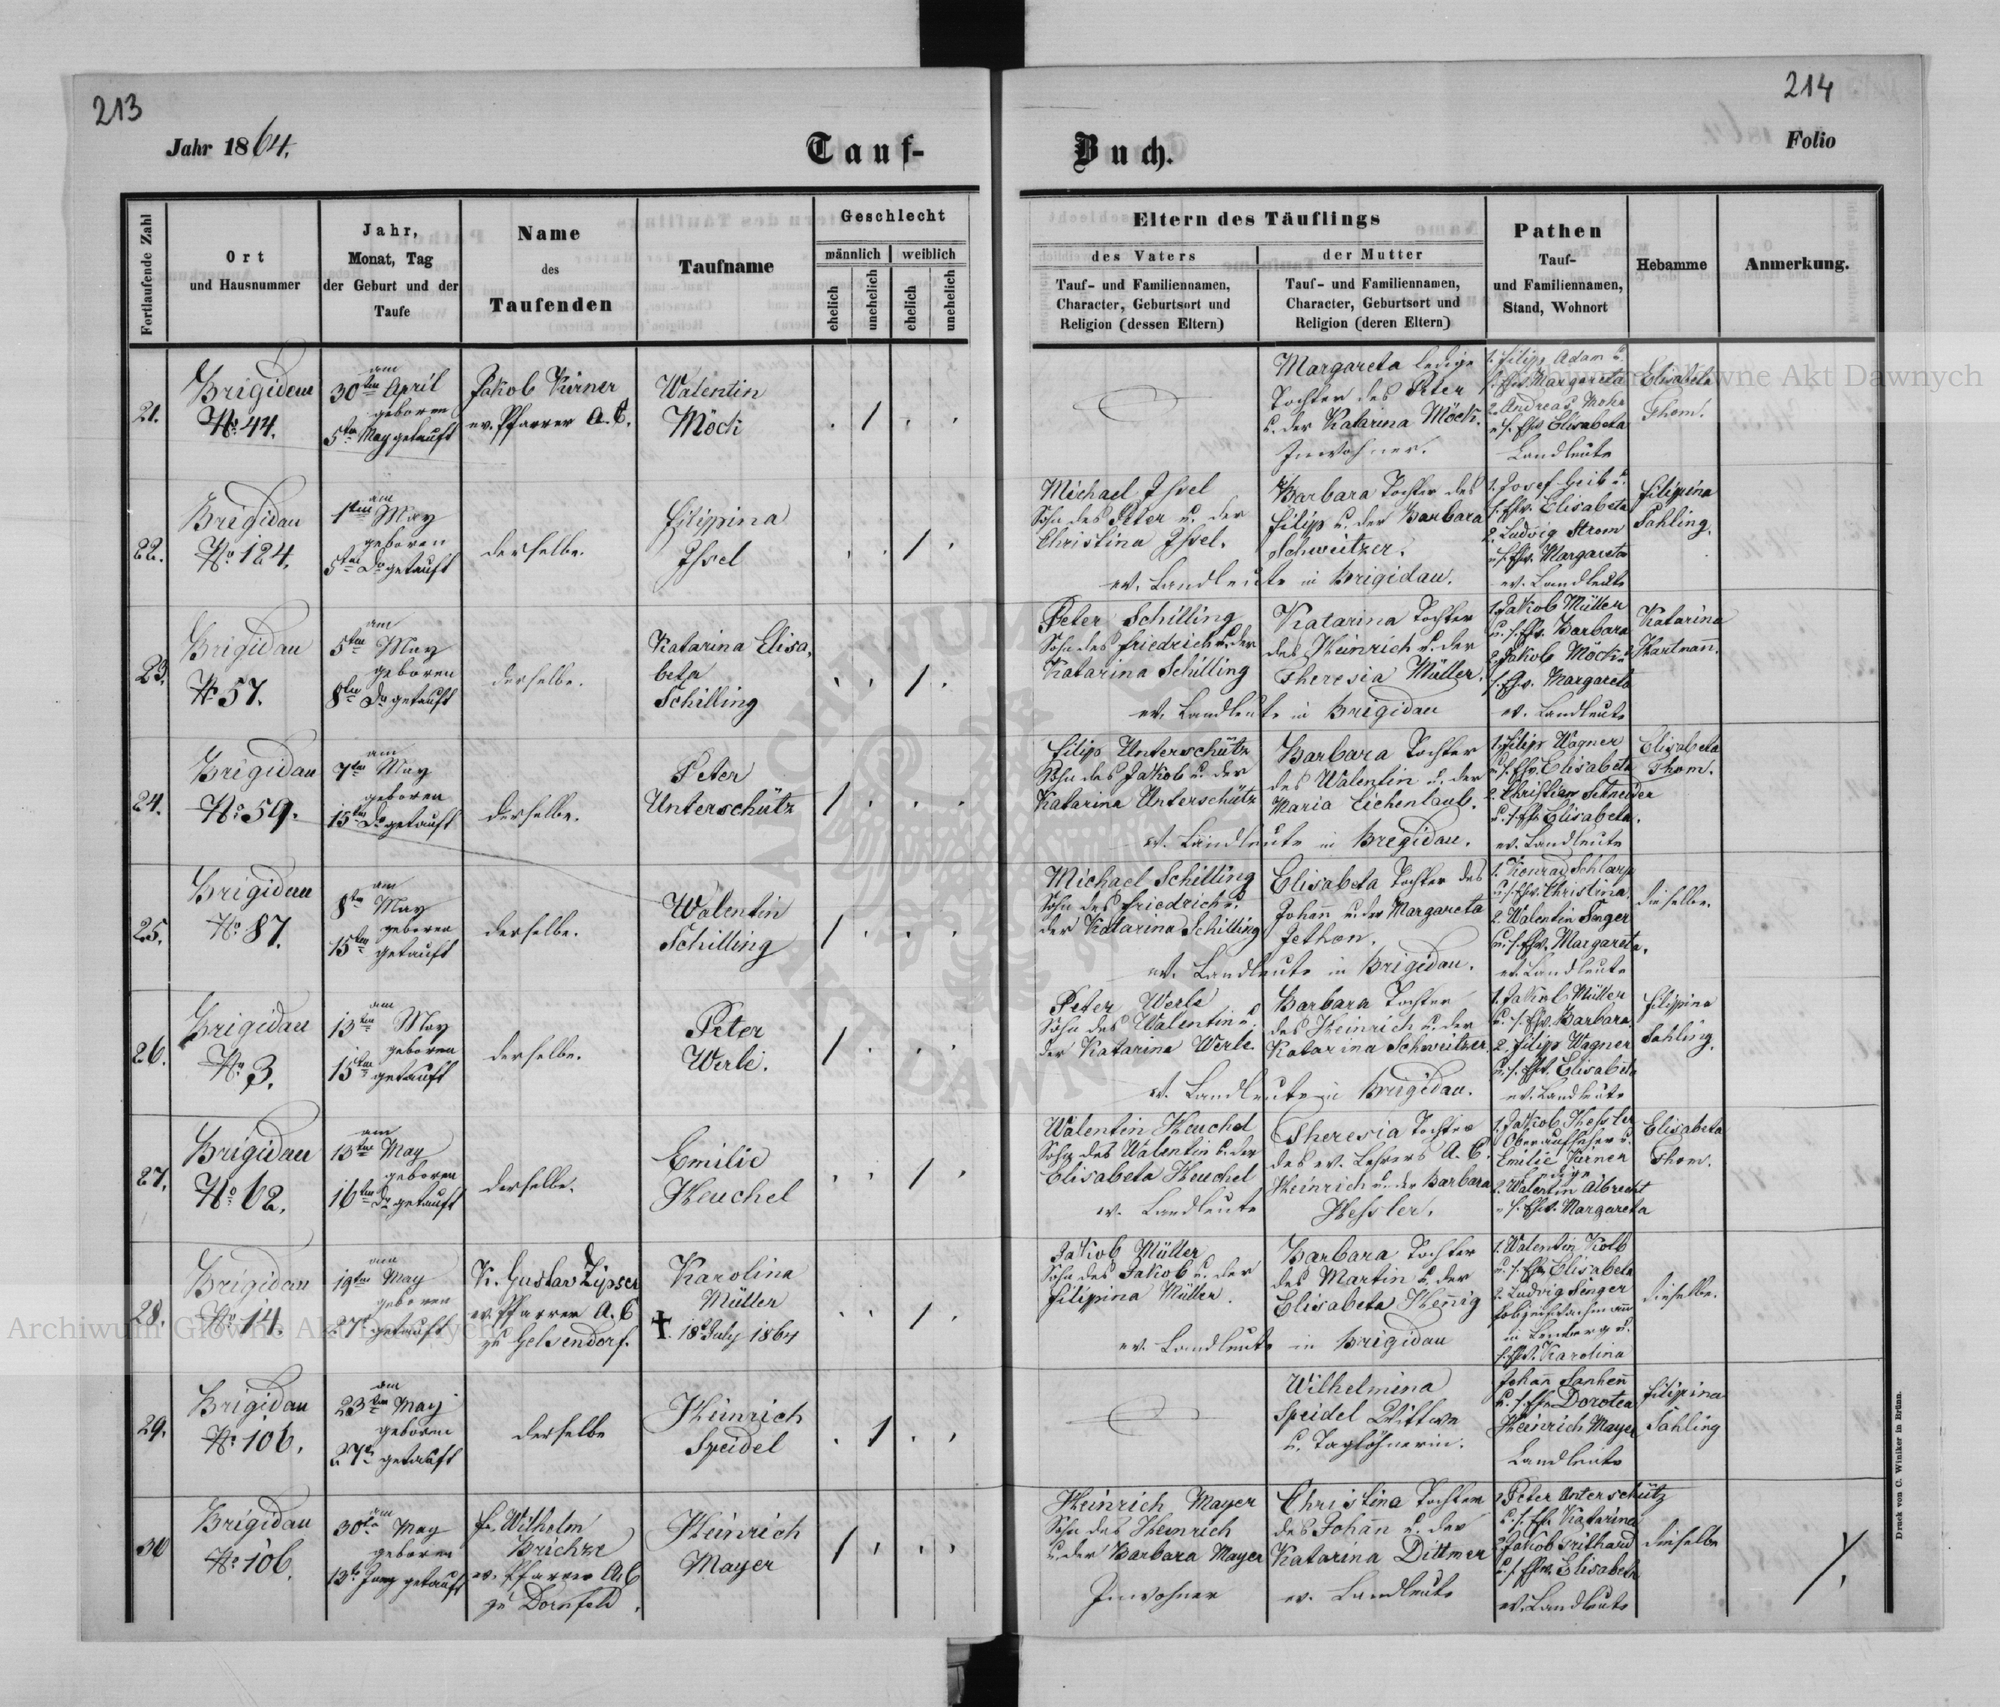 213
214
Jahr 1864.
Tauf-
Buch.
Folio
Fortlaufende Zahl
Ort
und Hausnummer
Jahr,
Monat, Tag
der Geburt und der
Taufe
Name
des
Taufenden
Taufname
Geschlecht
männlich
weiblich
ehelich
unehelich
ehelich
unehelich
Eltern des Täuflings
des Vaters
Tauf- und Familiennamen,
Character, Geburtsort und
Religion (dessen Eltern)
der Mutter
Tauf- und Familiennamen,
Character, Geburtsort und
Religion (deren Eltern)
Pathen
Tauf-
und Familiennamen,
Stand, Wohnort
Hebamme
Anmerkung.
21.
Brigidau
No 44.
am
30ten April
geboren
5ten May getauft
Jakob Kirner
ev. Pfarrer A. C.
Walentin
Möck
Margareta ledige
Tochter des Peter
u. der Katarina Möck.
Inwohner.
1. Filipp Adam u.
s. Ehw. Margareta
2. Andreas Mohr
u. s. Ehw. Elisabeta
Landleute
Elisabeta
Thom.
22.
Brigidau
No 124.
am
1ten May
geboren
5ten Do getauft
derselbe.
Filipina
Issel
Michael Issel
Sohn des Peter u. der
Christina Issel.
Barbara Tochter des
Filip u. der Barbara
Schweitzer.
ev. Landleute in Brigidau.
1. Josef Heib u.
s. Ehw. Elisabeta
2. Ludwig Strom
u. s. Ehw. Margareta
ev. Landleute
Filipina
Sahling.
23.
Brigidau
No 57.
am
5ten May
geboren
8ten Do getauft
derselbe.
Katarina Elisa,
beta
Schilling
Peter Schilling
Sohn des Friedrich u. der
Katarina Schilling
Katarina Tochter
des Heinrich u. der
Theresia Müller.
ev. Landleute in Brigidau
1. Jakob Müller
u. s. Ehw. Barbara
2. Jakob Möck u.
s. Ehw. Margareta
ev. Landleute
Katarina
Hartmañ.
24.
Brigidau
No 59.
am
7ten May
geboren
15ten Do getauft
derselbe.
Peter
Unterschütz
Filipp Unterschütz
Sohn des Jakob u. der
Katarina Unterschütz
Barbara Tochter
des Walentin u. der
Maria Eichenlaub.
ev. Landleute in Bregidau.
1. Filipp Wagner
u. s. Ehw. Elisabeta
2. Christian Schneider
u. s. Ehw. Elisabeta.
ev. Landleute
Elisabeta
Thom.
25.
Brigidau
No 87.
am
8ten May
geboren
15ten getauft
derselbe.
Walentin
Schilling
Michael Schilling
Sohn des Friedrich u.
der Katarina Schilling
Elisabeta Tochter des
Johañ u. der Margareta
Jethon.
ev. Landleute in Brigidau.
1. Konrad Schlarp
u. s. Ehw. Christina,
2. Walentin Senger
u. s. Ehw. Margareta.
ev. Landleute
dieselbe.
26.
Brigidau
No 3.
am
13ten May
geboren
15ten getauft
derselbe.
Peter
Werle.
Peter Werle
Sohn des Walentin u.
der Katarina Werle.
Barbara Tochter
des Heinrich u. der
Katarina Schweitzer.
ev. Landleute in Brigidau.
1. Jakob Müller
u. s. Ehw. Barbara,
2. Filipp Wagner
u. s. Ehw. Elisabeta
ev. Landleute
Filipina
Sahling.
27.
Brigidau
No 62.
am
13ten May
geboren
16ten Do getauft
derselbe.
Emilie
Heuchel
Walentin Heuchel
Sohn des Walentin u. der
Elisabeta Heuchel
ev. Landleute
Theresia Tochter
des ev. Lehrers A. C.
Heinrich u. der Barbara
Hessler.
1. Jakob Hessler
Oberaufseher u.
Emilie Kirner
ledige
2. Walentin Albrecht
u. s. Ehw. Margareta
Elisabeta
Thom.
28.
Brigidau
No 14.
am
19ten May
geboren
27. getauft
K. Gustav Zipser
ev. Pfarrer A. C
zu Gelsendorf.
Karolina
Müller
✝. 18 July 1864
Jakob Müller
Sohn des Jakob u. der
Filipina Müller.
Barbara Tochter
des Martin u. der
Elisabeta Heñig
ev. Landleute in Brigidau
1. Walentin Kolb
u. s. Ehw. Elisabeta
2. Ludwig Senger
in Lemberg u.
s. Ehw. Karolina
dieselbe.
29.
Brigidau
No 106.
am
23ten May
geboren
27ten getauft
derselbe
Heinrich
Speidel
Wilhelmina
Speidel Wittwe
u. Taglöhnerin.
Johañ
u. s. Ehw. Dorotea
Heinrich Mayer
Landleute
Filipina
Sahling
30
Brigidau
No 106.
am
30ten May
geboren
13ten Juny getauft
Fr. Wilhelm
ev. Pfarrer A. C
zu Dornfeld.
Heinrich
Mayer
Heinrich Mayer
Sohn des Heinrich
u. der Barbara Mayer
Inwohner
Christina Tochter
des Johañ u. der
Katarina Dittmer
ev. Landleute
1. Peter Unterschütz
u. s. Ehw. Katarina
2. Jakob
u. s. Ehw. Elisabeta
ev. Landleute
dieselbe
Druck von C. Winiker in Brünn.
Archiwum Główne Akt Dawnych
Archiwum Główne Akt Dawnych
ARCHIWUM GŁÓWNE AKT DAWNYCH